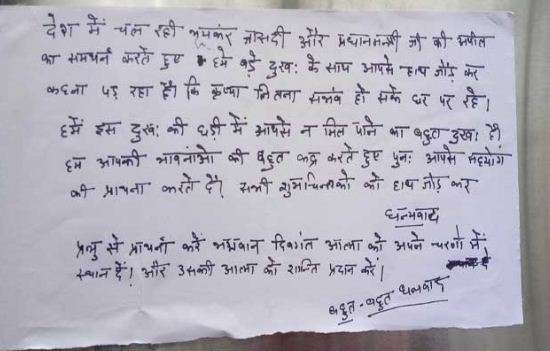 देश में चल रही भयंकर त्रासदी और प्रधानमन्त्री जी की अपील
का समर्थन करते हुए हमे बड़े दुख: के साथ आपसे हाथ जोड़ कर
कहना पड़ रहा है। कि कृप्या जितना सभंव हो सके घर पर रहे।
हमें इस दुख: की घड़ी में आपसे न मिल पाने का बहुत दुख: है।
हम आपकी भावनाओ की बहुत कद्र करते हुए पुन: आपसे सहयोग
की प्राथना करते है। सभी शुभचिन्तको को हाथ जोड़ कर
धन्यवाद
प्रभु से प्राथना करें भगवान दिवगंत आत्मा को अपने चरणों में
स्थान दें। और उसकी आत्मा को शान्ति प्रदान करें।
बहुत-बहुत धन्यवाद